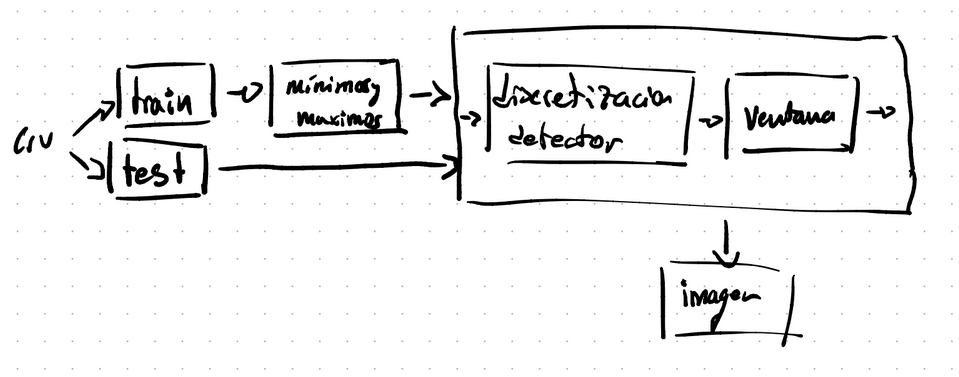 csv
train
minimos y
maximos
test
discretizacion
detector
ventana
imagen